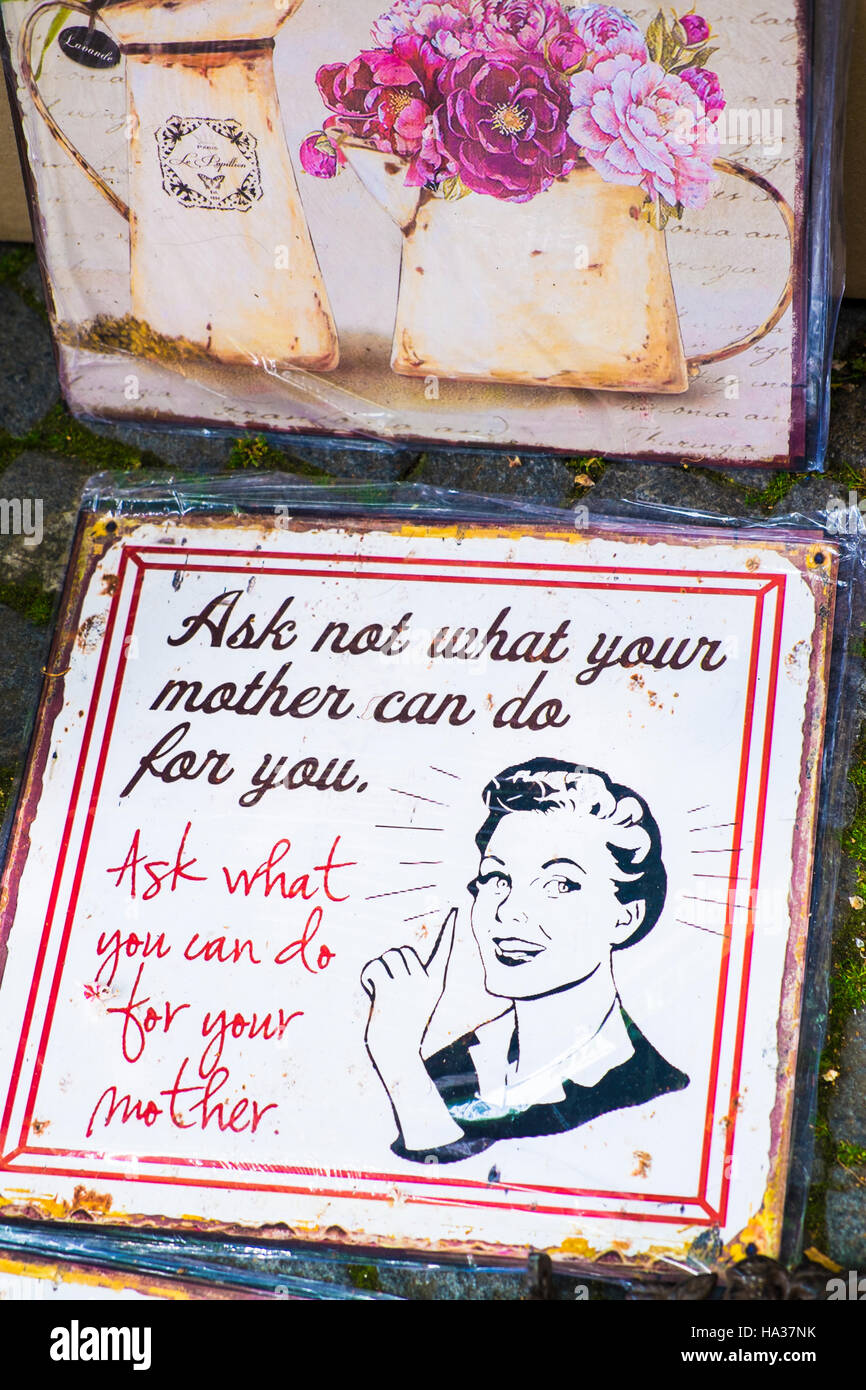 Lavande
PARIS
Le Papillon
Thuringia
Ask not what your
mother can do
for you.
Ask what
you can do
for your
mother.
alamy
Image ID: HA37NK
www.alamy.com